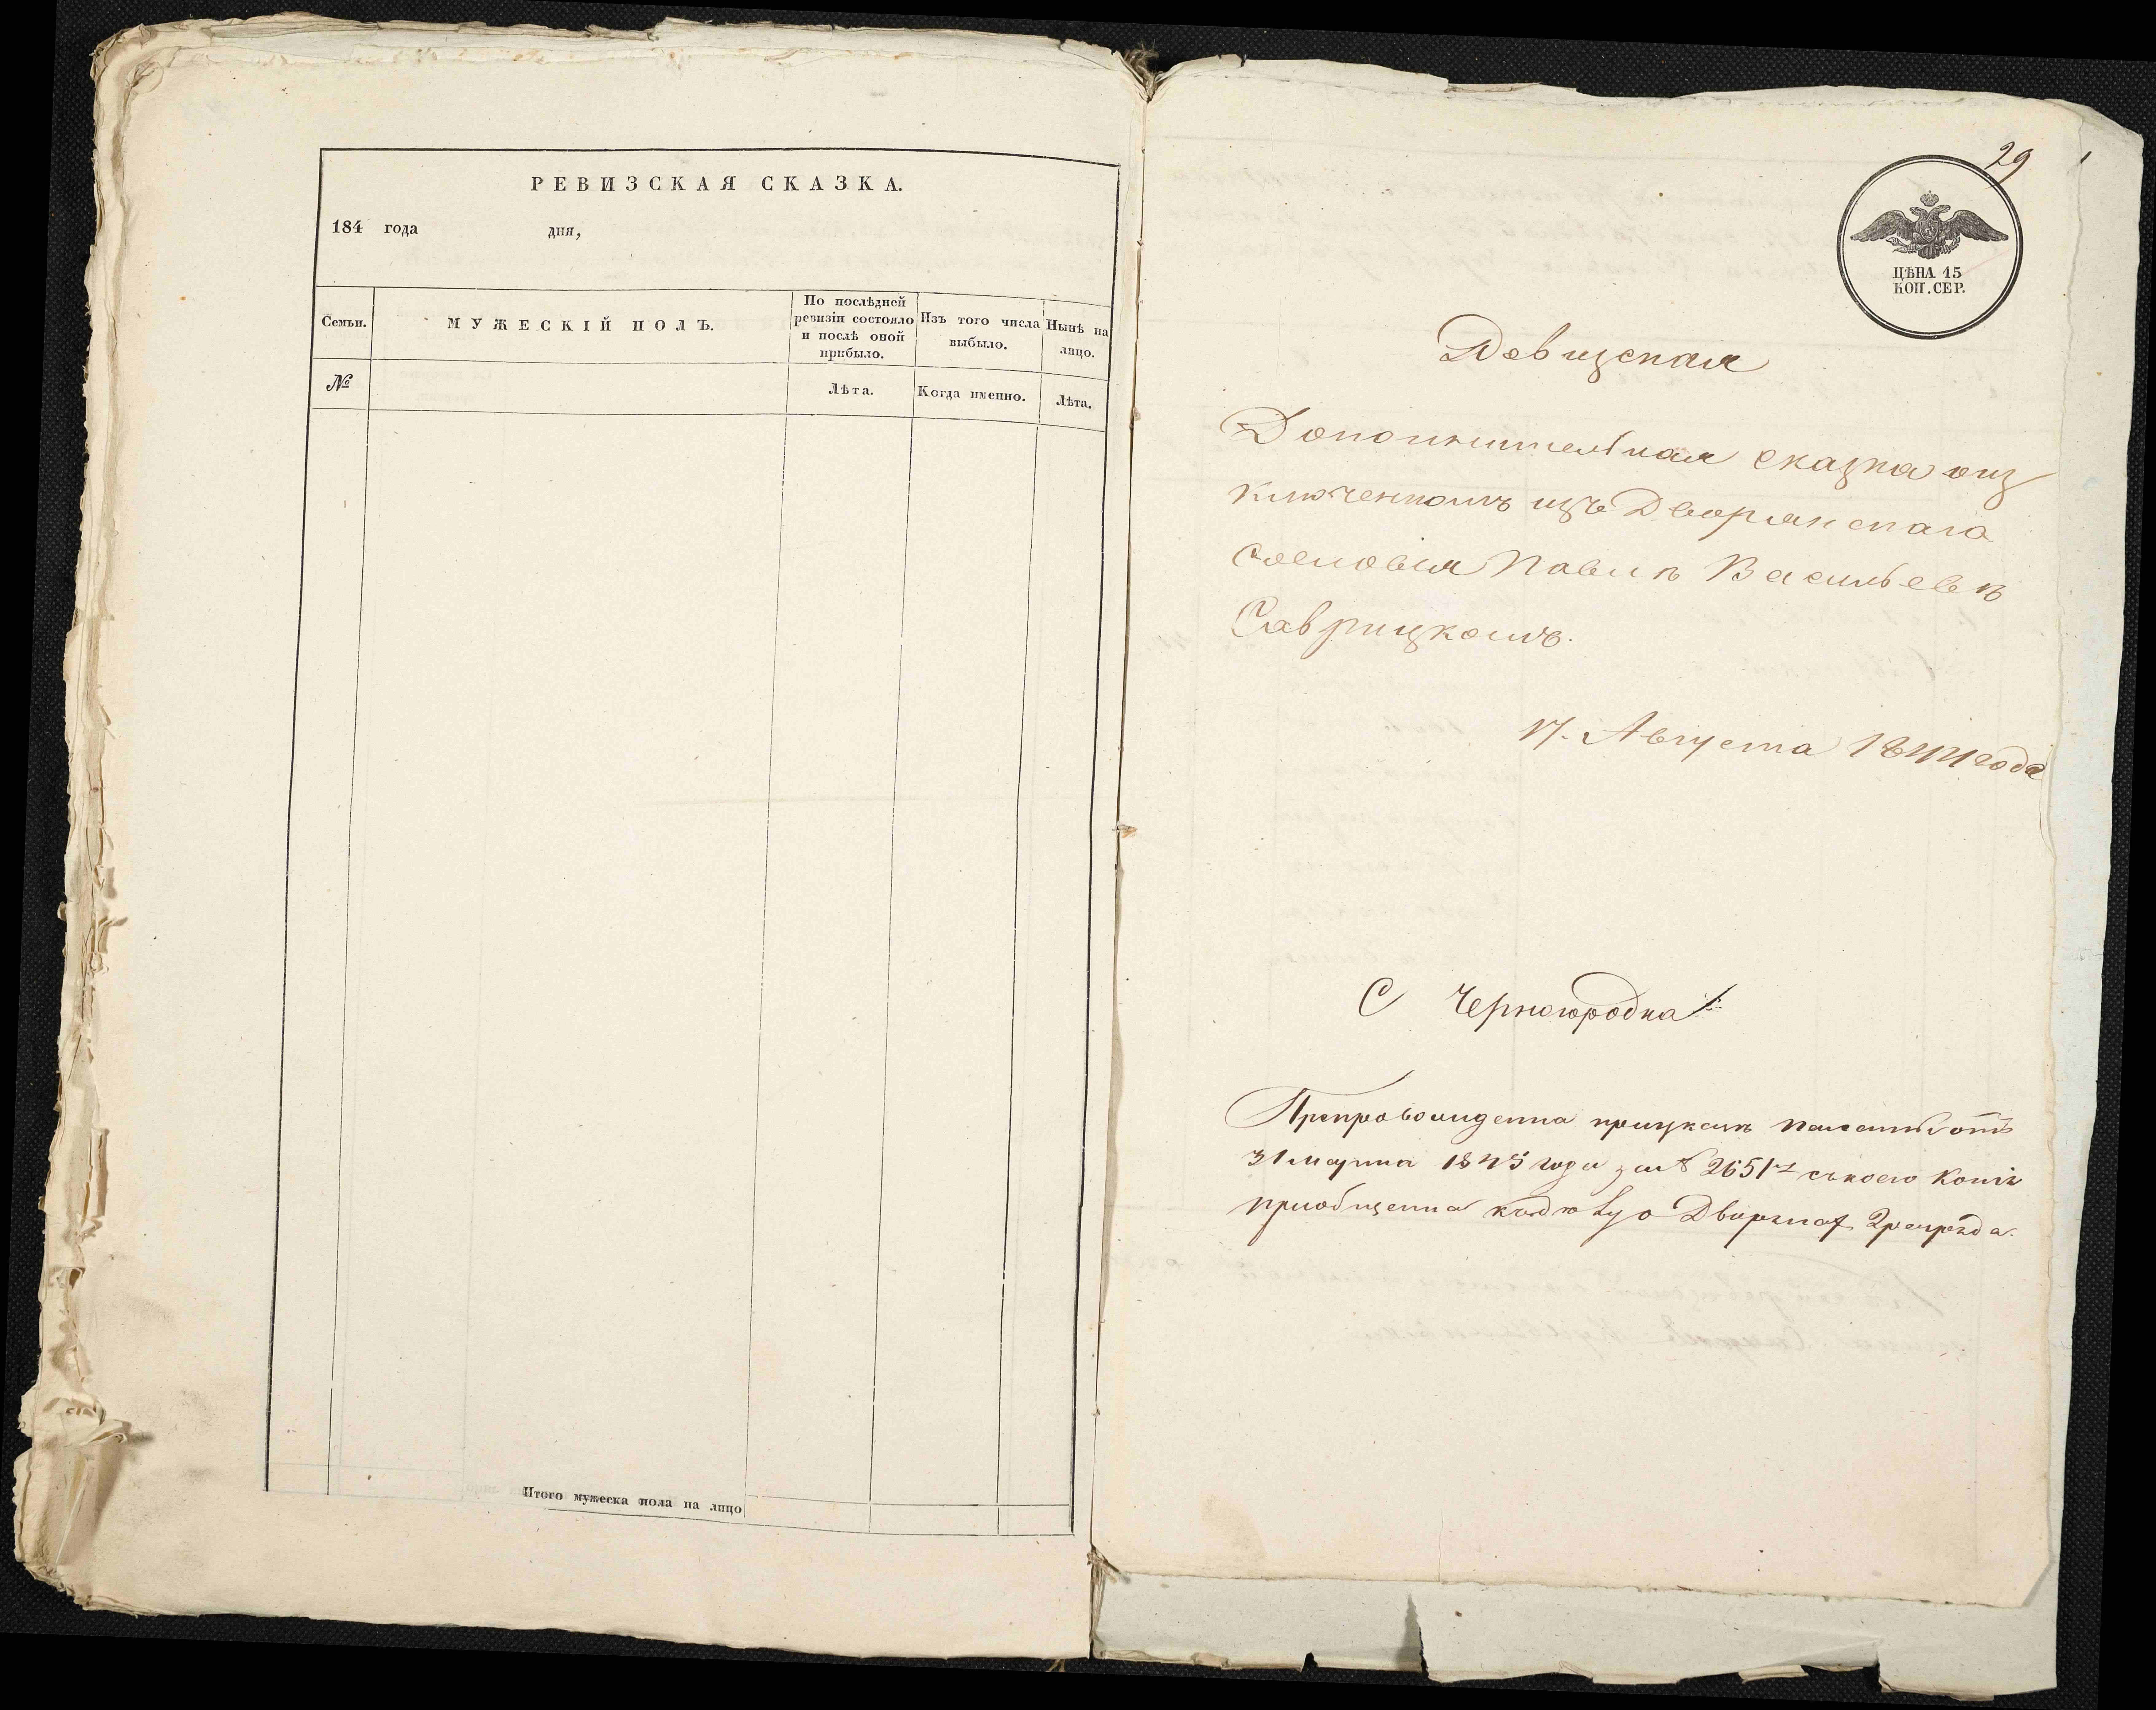 РЕВИЗСКАЯ СКАЗКА.
184 года дня,
Семьи.
МУЖЕСКІЙ ПОЛЪ.
По послѣдней
ревизіи состояло
и послѣ оной
прибыло.
Изъ того числа
выбыло.
Нынѣ на
лицо.
№
Лѣта.
Когда именно.
Лѣта.
Итого мужеска пола на лицо
29
ЦѢНА 15
КОП. СЕР.
Дополнительная сказка оиз
ключенномъ изъ Дворянскаго
сословія Павлѣ Васильевѣ
Саврицкомъ.
17. Августа 1844 года
С Черногородка
Препровождена приуказѣ палаты отъ
31 марта 1845 года за № 2651 съкоего копія
приобщена кдѣлу о Дворянах 2 разряда.